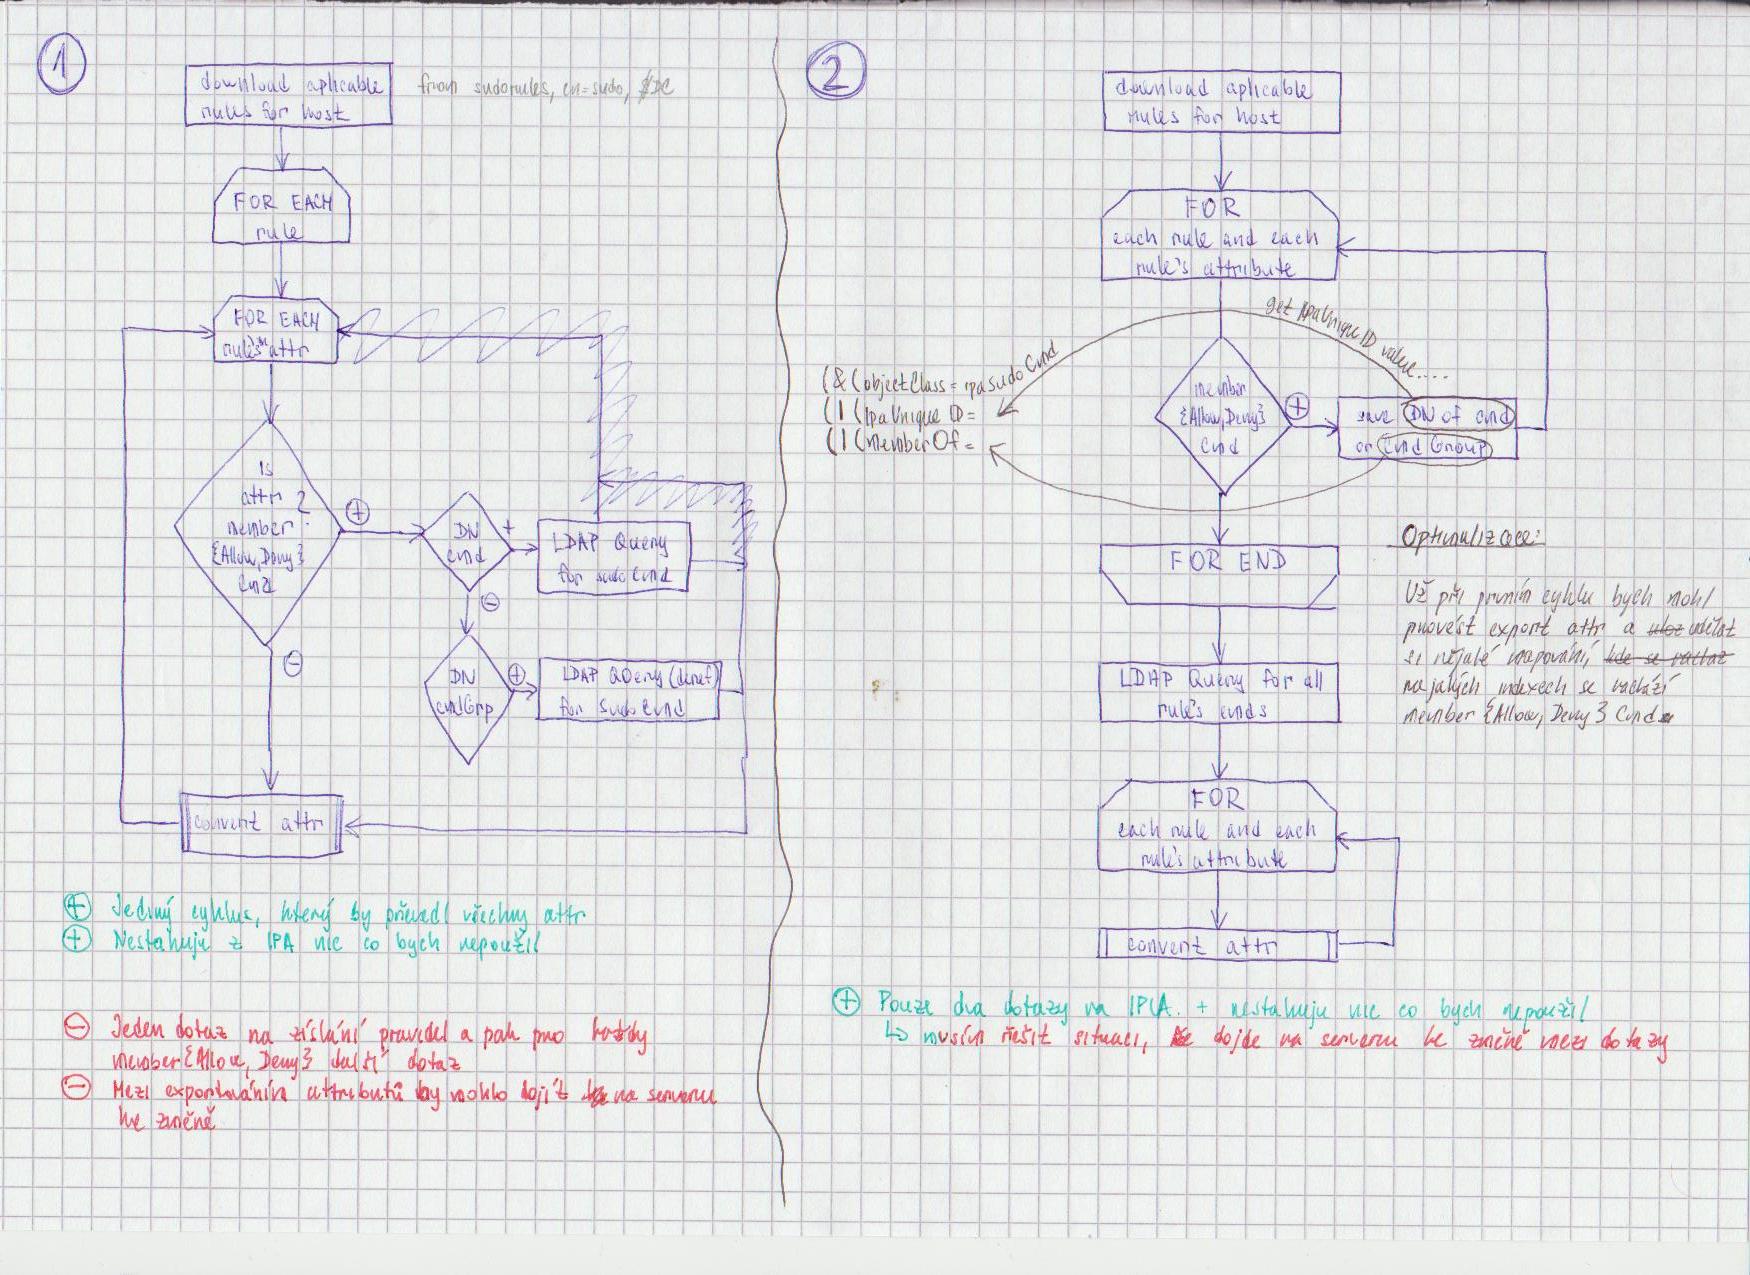 1
download aplicable
rules for host
from sudorules, cn=sudo, $DC
FOR EACH
rule
FOR EACH
rule's attr
Is
attr ?
member
{Allow,Deny}
Cmd
+
DN
cmd
+
LDAP Query
for sudoCmd
-
DN
cmdGrp
+
LDAP Query (deref)
for SudoCmd
-
convert attr
+ Jediný cyklus, který by převedl všechny attr
+ Nestahuju z IPA nic co bych nepoužil
- Jeden dotaz na získání pravidel a pak pro každý
member{Allow, Deny} další dotaz
- Mezi exportováním attributů by mohlo dojít na serveru
ke změně
2
download aplicable
rules for host
FOR
each rule and each
rule's attribute
get ipaUniqueID value....
(&(objectClass=ipasudoCmd
(|(ipaUniqueID=
(|(memberOf=
member
{Allow,Deny}
Cmd
+
save DN of cmd
or Cmd Group
FOR END
Optimalizace:
Už při prvním cyklu bych mohl
provést export attr a udělat
si nějaké mapování,
na jakých indexech se nachází
member {Allow, Deny} Cmd
LDAP Query for all
rule's cmds
FOR
each rule and each
rule's attribute
convert attr
+ Pouze dva dotazy na IPA. + nestahuju nic co bych nepoužil
↳ musím řešit situaci, že dojde na serveru ke změně mezi dotazy